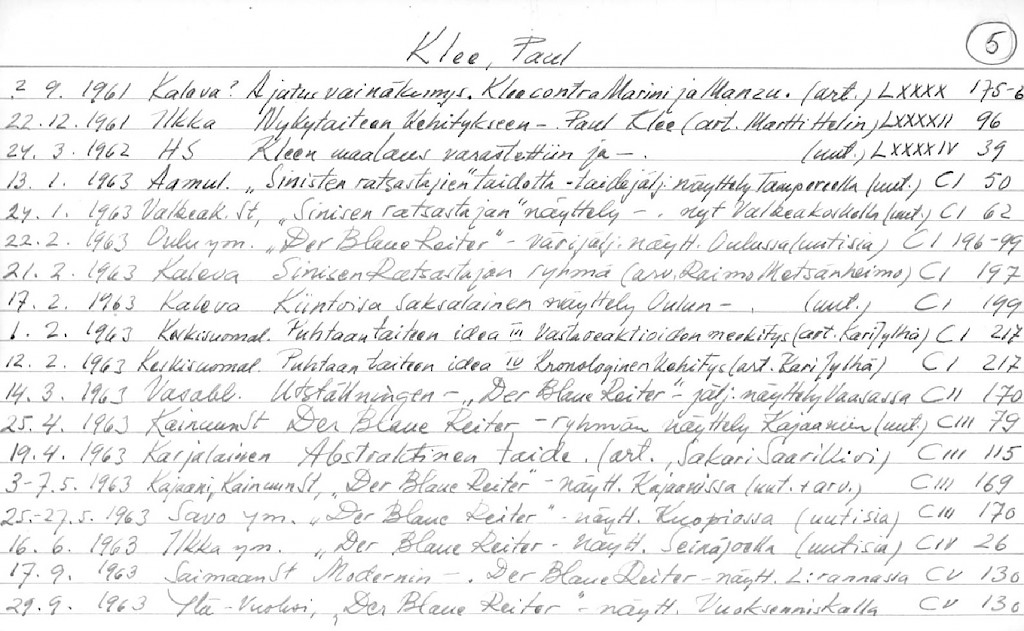 5
Klee, Paul
? 9. 1961 Kaleva? Ajatus vainäkemys. Klee contra Marini ja Manzu. (art.) LXXXX 175-6
22.12. 1961 Ilkka Nykytaiteen kehitykseen -. Paul Klee (art. Martti Helin) LXXXXII 96
24. 3. 1962 HS Kleen maalaus varastettiin ja -. (uut.) LXXXXIV 39
13. 1. 1963 Aamul. "Sinisten ratsastajien" taidetta - taidejälj. näyttely Tampereella (uut.) CI 50
24. 1. 1963 Valkeak. St, "Sinisen ratsastajan" näyttely -. nyt Valkeakoskella (uut.) CI 62
22.2. 1963 Oulu ym. "Der Blaue Reiter" - värijälj. näytt. Oulussa (uutisia) CI 196-99
21. 2. 1963 Kaleva Sinisen Ratsastajan ryhmä (arv. Raimo Metsänheimo) CI 197
17. 2. 1963 Kaleva Kiintoisa saksalainen näyttely Oulun -. (uut.) CI 199
1. 2. 1963 Keskisuomal. Puhtaan taiteen idea III Vastareaktioiden merkitys (art. Kari Jylhä) CI 217
12. 2. 1963 Keskisuomal. Puhtaan taiteen idea IV Kronologinen kehitys (art. Kari Jylhä) CI 217
14. 3. 1963 Vasabl. Utställningen - "Der Blaue Reiter" - jälj. näyttely Vaasassa CII 170
25. 4. 1963 Kainuun St Der Blaue Reiter - ryhmän näyttely Kajaaniin (uut.) CIII 79
19. 4. 1963 Karjalainen Abstraktinen taide. (art. Sakari Saarikivi) CIII 115
3-7.5. 1963 Kajaani, Kainuun St, "Der Blaue Reiter" - näytt. Kajaanissa (uut. + arv.) CIII 169
25.-27.5. 1963 Savo ym. "Der Blaue Reiter" - näytt. Kuopiossa (uutisia) CIII 170
16. 6. 1963 Ilkka ym. "Der Blaue Reiter - näytt. Seinäjoella (uutisia) CIV 26
17. 9. 1963 Saimaan St Modernin -. Der Blaue Reiter - näytt. L:rannassa CV 130
29. 9. 1963 Ylä-Vuoksi, "Der Blaue Reiter" - näytt. Vuoksenniskalla CV 130